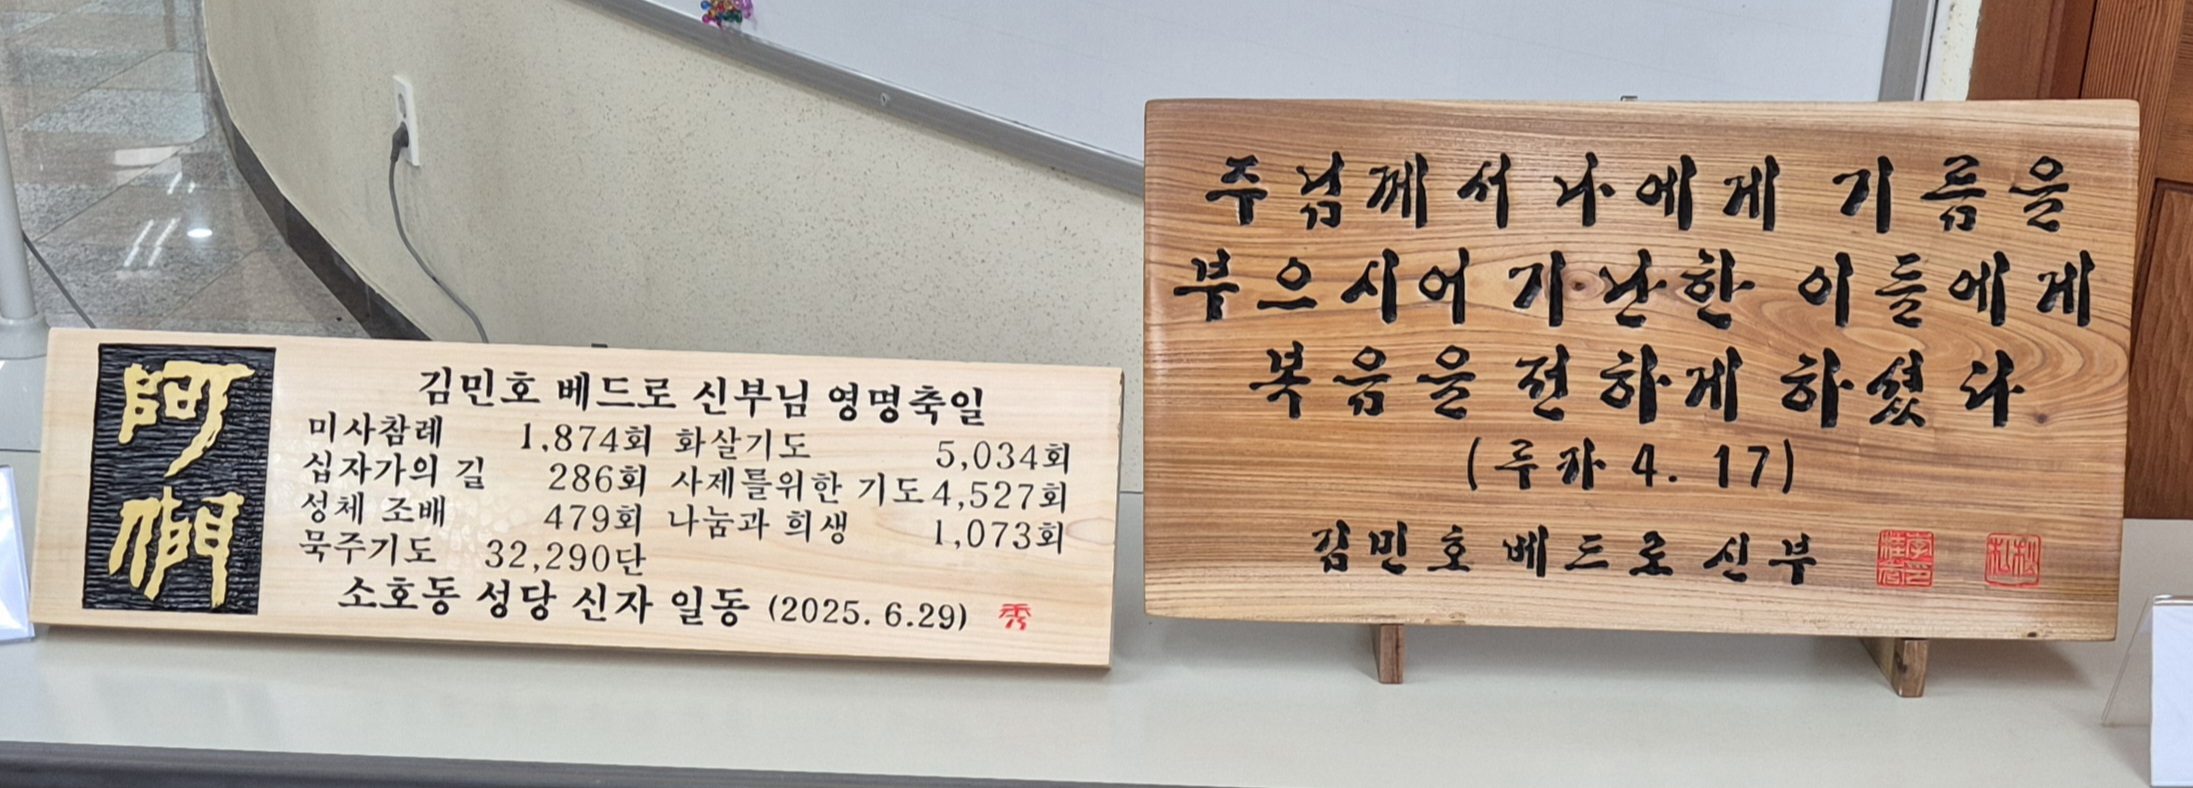 阿們
김민호 베드로 신부님 영명축일
미사참례 1,874회 화살기도 5,034회
십자가의 길 286회 사제를위한 기도 4,527회
성체 조배 479회 나눔과 희생 1,073회
묵주기도 32,290단
소호동 성당 신자 일동 (2025. 6.29) 秀
주님께서 나에게 기름을
부으시어 가난한 이들에게
복음을 전하게 하셨다
(루카 4. 17)
김민호 베드로 신부